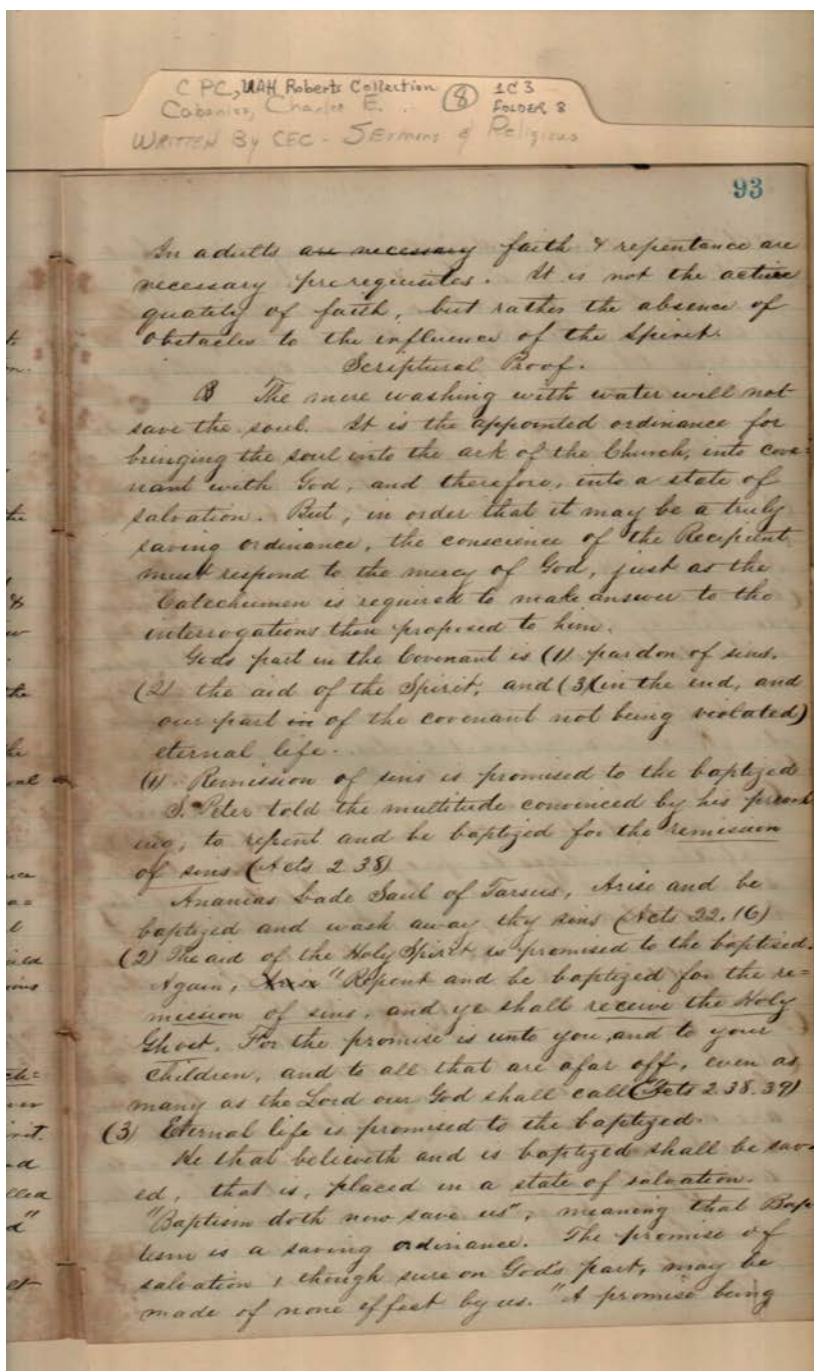 C PC, UAH Roberts Collection
Cabaniss, Charles E.
8
1C3
FOLDER 8
WRITTEN By CEC - SErmons & Religious
93
In adults are necessary faith & repentance are
necessary prerequisites. It is not the active
quality of faith, but rather the absence of
obstacles to the influence of the Spirit.
Scriptural Proof.
B The mere washing with water will not
save the soul. It is the appointed ordinance for
bringing the soul into the ark of the Church, into cove-
nant with God, and therefore, into a state of
salvation. But, in order that it may be a truly
saving ordinance, the conscience of the Recipient
must respond to the mercy of God, just as the
Catechumen is required to make answer to the
interrogations then proposed to him.
Gods part in the Covenant is (1) pardon of sins.
(2) the aid of the Spirit, and (3) (in the end, and
our part in of the covenant not being violated)
eternal life.
(1) Remission of sins is promised to the baptized
S. Peter told the multitude convinced by his preach
ing, to repent and be baptized for the remission
of sins (Acts 2 38)
Ananias bade Saul of Tarsus, Arise and be
baptized and wash away thy sins (Acts 22.16)
(2) The aid of the Holy Spirit is promised to the baptised.
Again, Arise "Repent and be baptized for the re=
mission of sins, and ye shall receive the Holy
Ghost. For the promise is unto you, and to your
children, and to all that are afar off, even as
many as the Lord our God shall call (Acts 2.38.39)
(3) Eternal life is promised to the baptized.
He that believeth and is baptized shall be sav-
ed, that is, placed in a state of salvation.
"Baptism doth now save us", meaning that Bap
tism is a saving ordinance. The promise of
salvation, though sure on God's part, may be
made of none effect by us. "A promise being